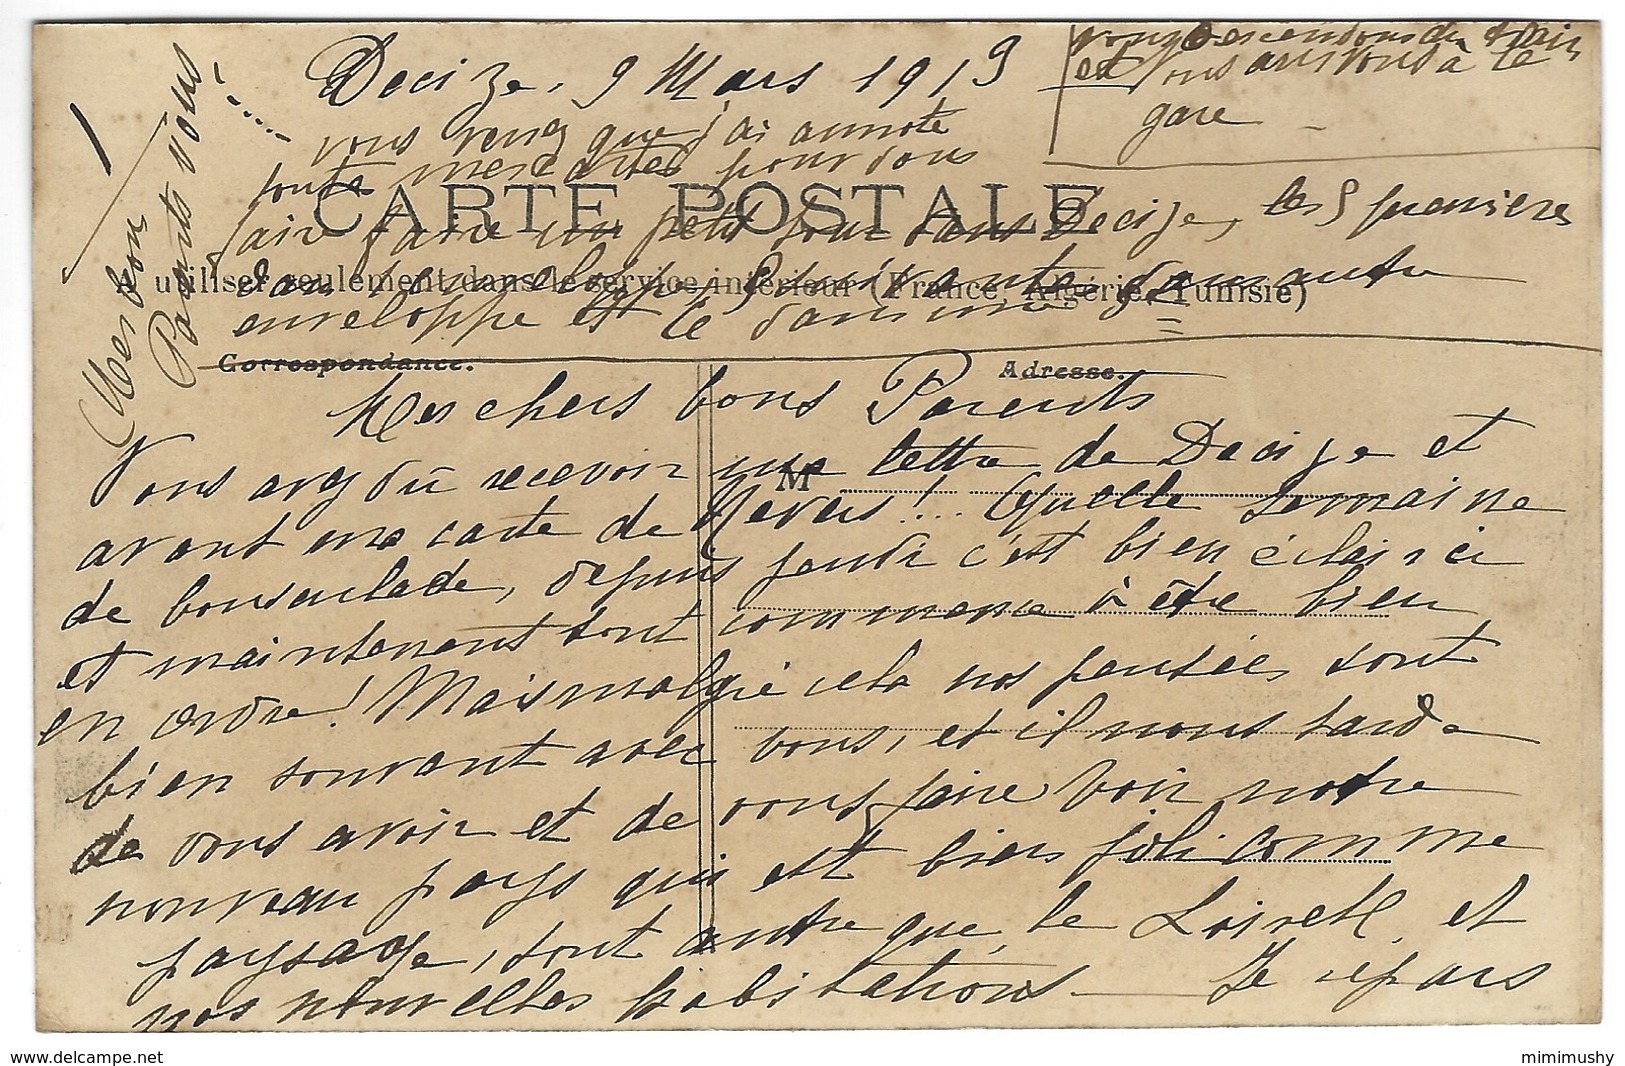 Decize, 9 Mars 1913
vous descendons du train
et nous arrivons à la
gare
1
Mes bons
Parents vous
vous verrez que j'ai annoté
toutes mes cartes pour vous
fair faire un petit tour dans Decize, les 5 premieres
dans l'enveloppe, suivante dans autre
enveloppe et
CARTE POSTALE
A utiliser seulement dans le service intérieur (France, Algérie, Tunisie)
Correspondance.
Adresse.
M
Mes chers bons Parents
Vous avez dû recevoir une lettre de Decize et
avant une carte de Nevers!... Quelle semaine
de bousculade, depuis jeudi c'est bien éclairci
et maintenant tout commence à être bien
en ordre! Mais malgré cela nos pensées sont
bien souvent avec vous, et il nous tarde
de vous avoir et de vous faire voir notre
nouveau pays qui est bien joli comme
paysage, tout autre que le Loiret et
nos nouvelles habitations — Je repars
www.delcampe.net
mimimushy